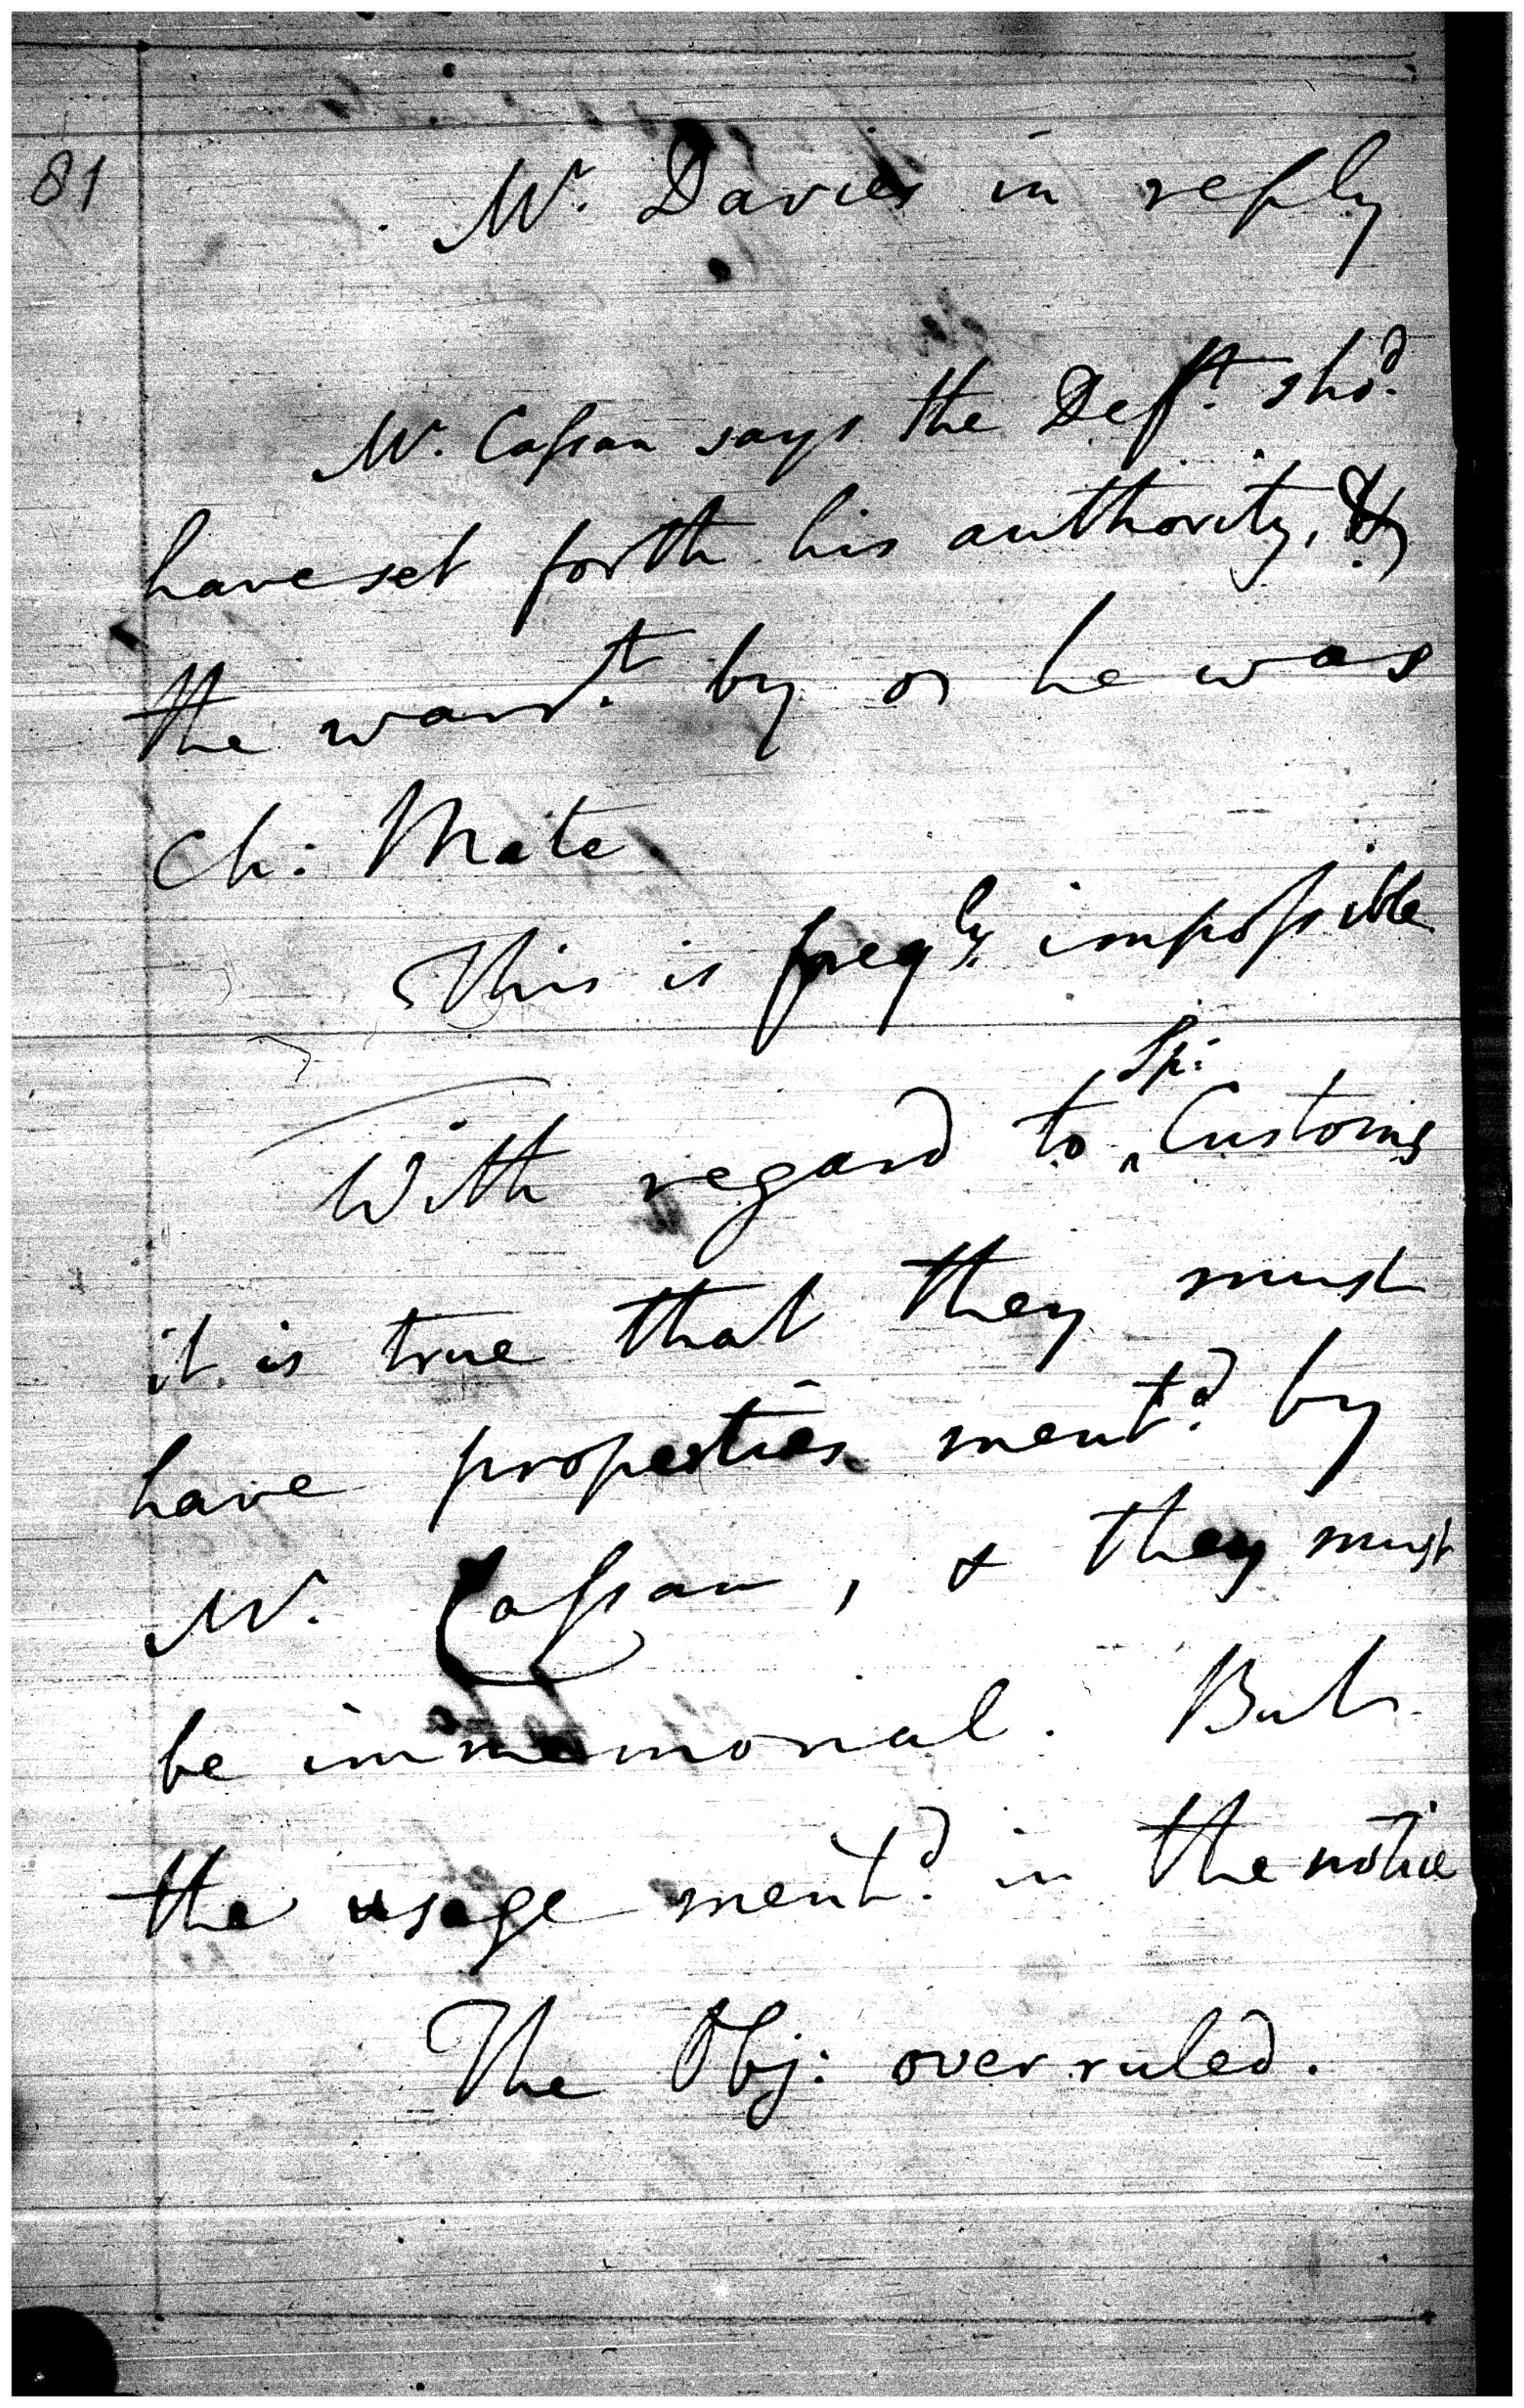 81
Mr. Davies in reply
Mr. Cassan says the Deft. shod.
have set forth his authority, &
the warrt. by
he was
Ch: Mate
This is freqly. impossible
Sp:
With regard to ‸ Customs
it is true that they must
have properties mentd. by
Mr. Cassan, & they must
be immemorial. But
the usage mentd. in the notice
The Obj: overruled.